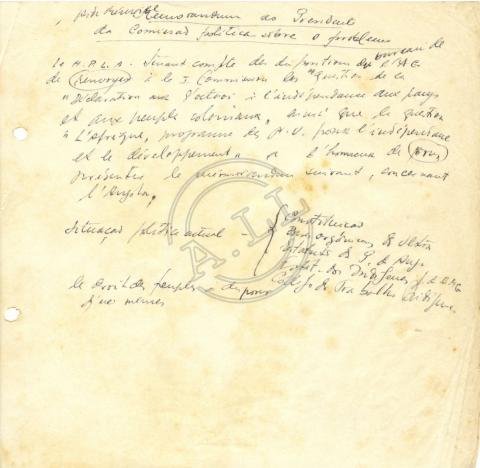 Memorandum ao Presidente
da Comissão política sobre o problema
Le M.P.L.A. tenant compte des dispositions du bureau de l'AG
de renvoyer à la 3. Commission les "question de la
"Déclaration sur l'octroi à l'indépendance aux pays
et aux peuples coloniaux, ainsi que la question
"L'Afrique, programme des N.U. pour l'indépendance
et le développement" a l'honneur de vous
présenter le memorandum suivant, concernant
l'Angola,
Situação política actual -
Constituição
orgânicas do Ultra
Estatuto da P. de Angola
Estat. dos Indígenas
Código do Trabalho Indígena
le droit des peuples a disposer
d'eux mêmes
A.T.L.